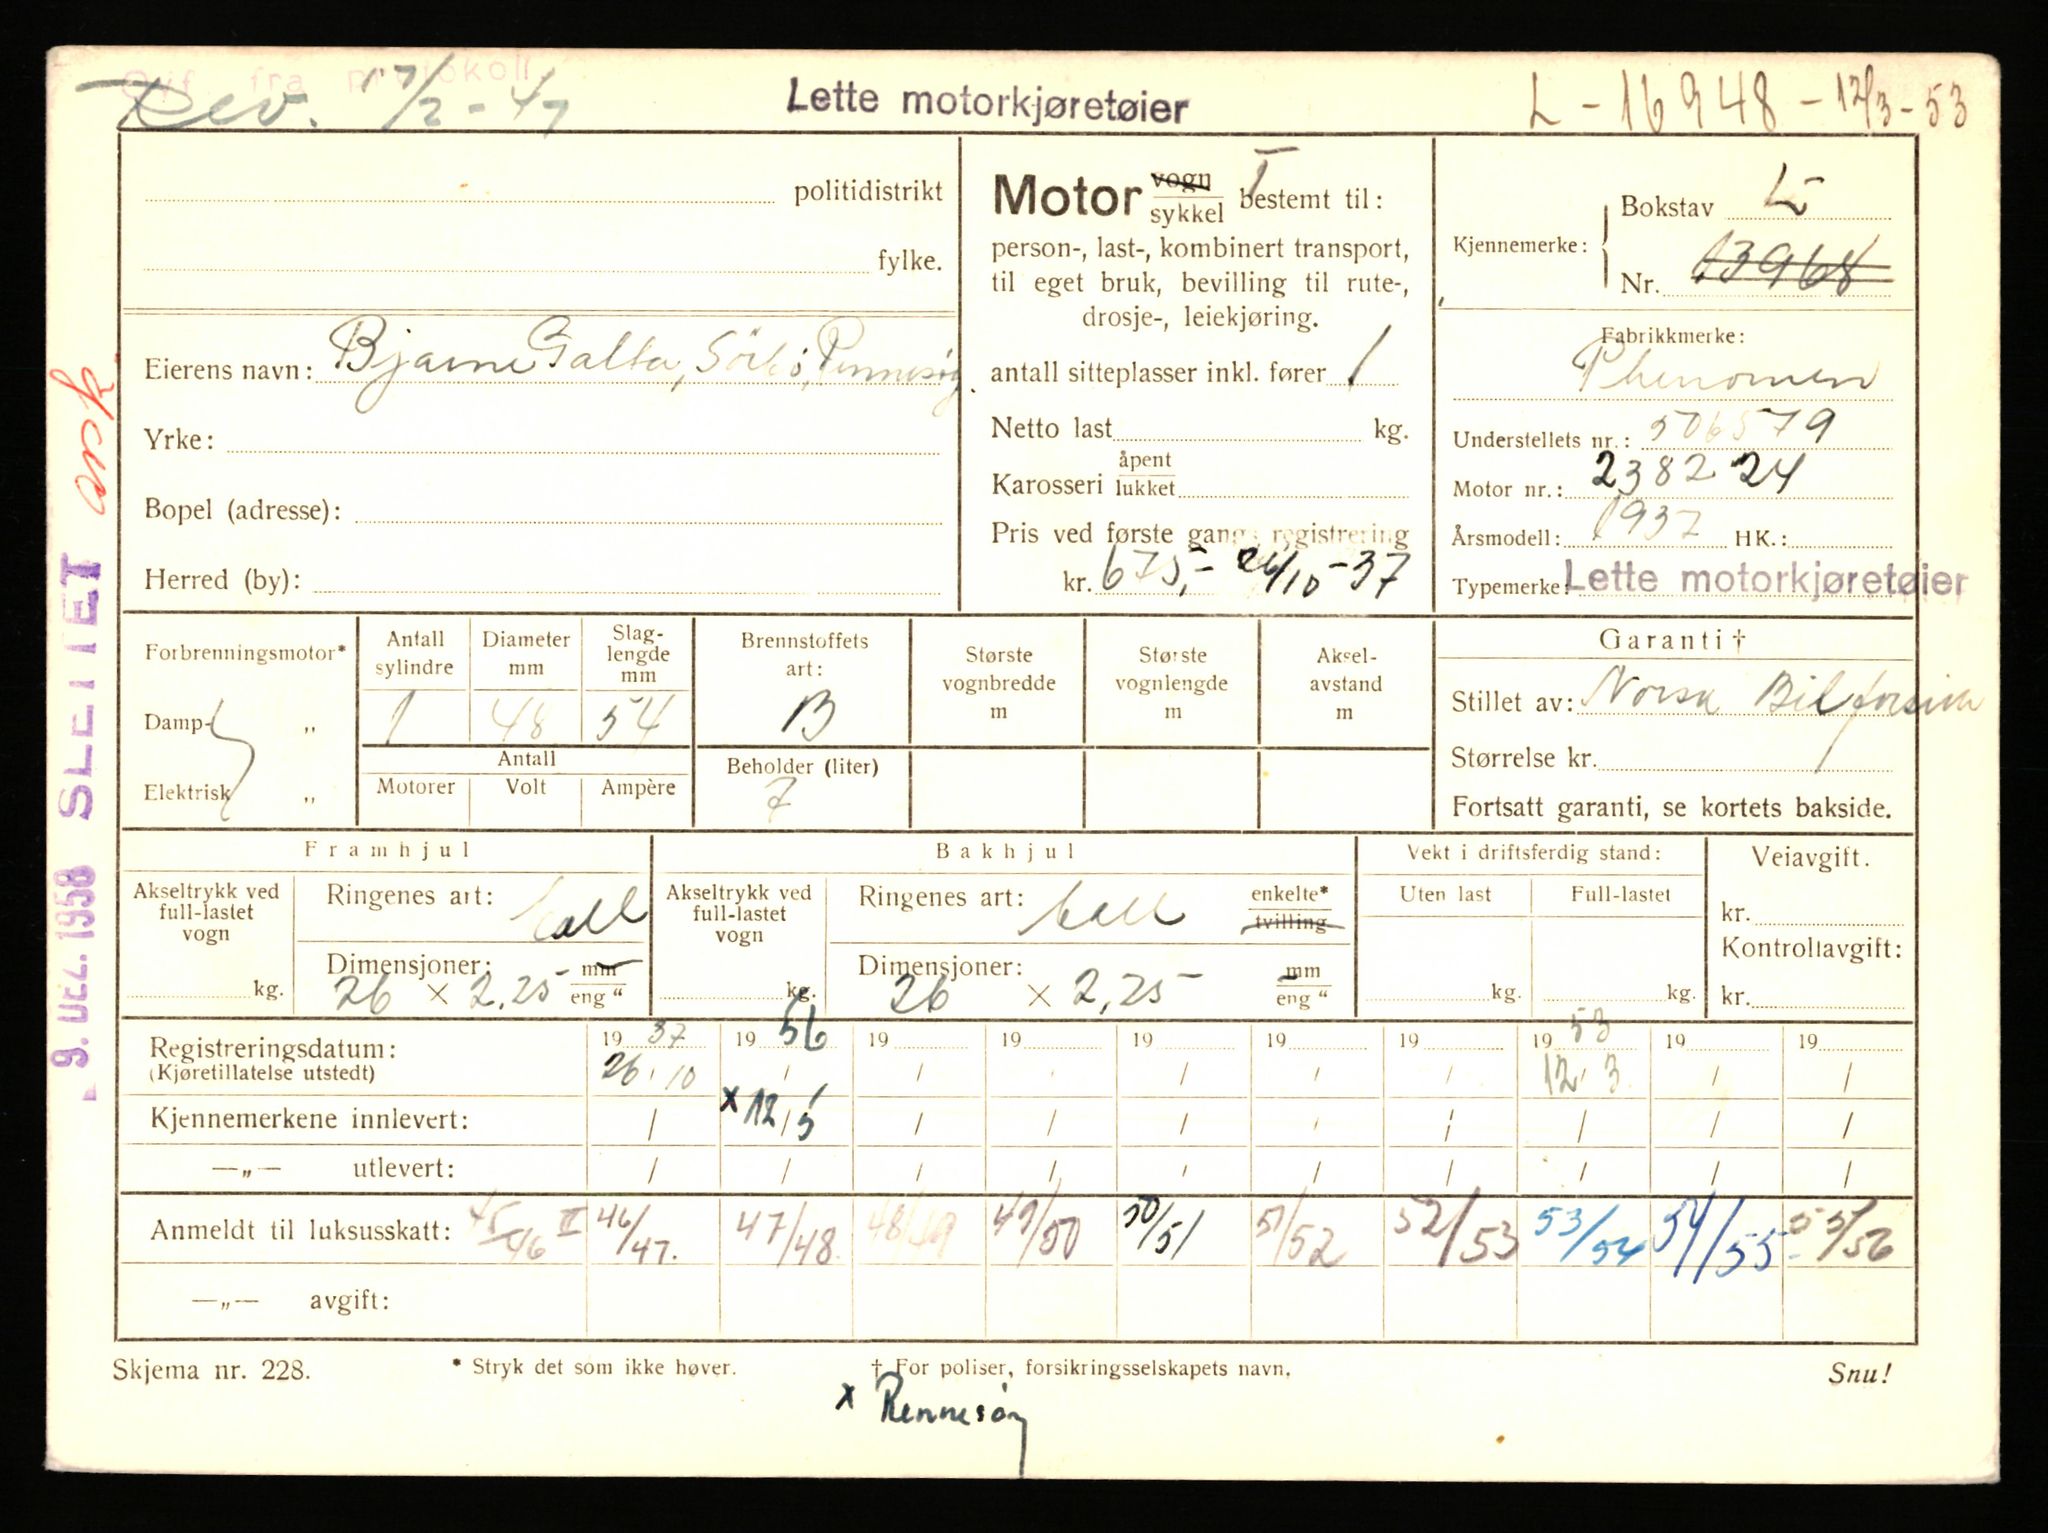 Overf. fra protokoll
Rev. 17/2-47
Lette motorkjøretøier
L - 16948 - 12/3-53
politidistrikt
fylke.
Eierens navn: Bjarne Galta, Sörbö, Rennesöy
Yrke:
Bopel (adresse):
Herred (by):
Motor vogn/sykkel bestemt til:
person-, last-, kombinert transport,
til eget bruk, bevilling til rute-,
drosje-, leiekjøring.
antall sitteplasser inkl. fører 1
Netto last kg.
Karosseri åpent/lukket
Pris ved første gangs registrering
kr. 675,- 26/10-37
Kjennemerke: Bokstav L
Nr. 13968
Fabrikkmerke:
Phenomen
Understellets nr.: 506579
Motor nr.: 238224
Årsmodell: 1937 HK.:
Typemerke: Lette motorkjøretøier
Forbrenningsmotor*
Damp- „
Elektrisk „
Antall sylindre 1
Diameter mm 48
Slaglengde mm 54
Antall
Motorer Volt Ampère
Brennstoffets art: B
Beholder (liter) 7
Største vognbredde m
Største vognlengde m
Aksel-avstand m
Garanti †
Stillet av: Norsk Bilforsikr
Størrelse kr.
Fortsatt garanti, se kortets bakside.
Framhjul
Akseltrykk ved full-lastet vogn
kg.
Ringenes art:
Dimensjoner: mm/eng "
26 × 2.25
Bakhjul
Akseltrykk ved full-lastet vogn
kg.
Ringenes art: enkelte*/tvilling
Dimensjoner: mm/eng "
26 × 2,25
Vekt i driftsferdig stand:
Uten last Full-lastet
kg. kg.
Veiavgift.
kr.
Kontrollavgift:
kr.
Registreringsdatum: 1937 1956 19 19 19 19 19 1953 19 19
(Kjøretillatelse utstedt) 26/10 / / / / / / 12/3 / /
Kjennemerkene innlevert: / x 12/5 / / / / / / / /
—„— utlevert: / / / / / / / / / /
Anmeldt til luksusskatt: 45/46 II 46/47. 47/48. 48/49 49/50 50/51 51/52 52/53 53/54 54/55 55/56
—„— avgift:
Skjema nr. 228.
* Stryk det som ikke høver.
† For poliser, forsikringsselskapets navn.
Snu!
x Rennesöy
9. DEZ. 1958 SLETTET